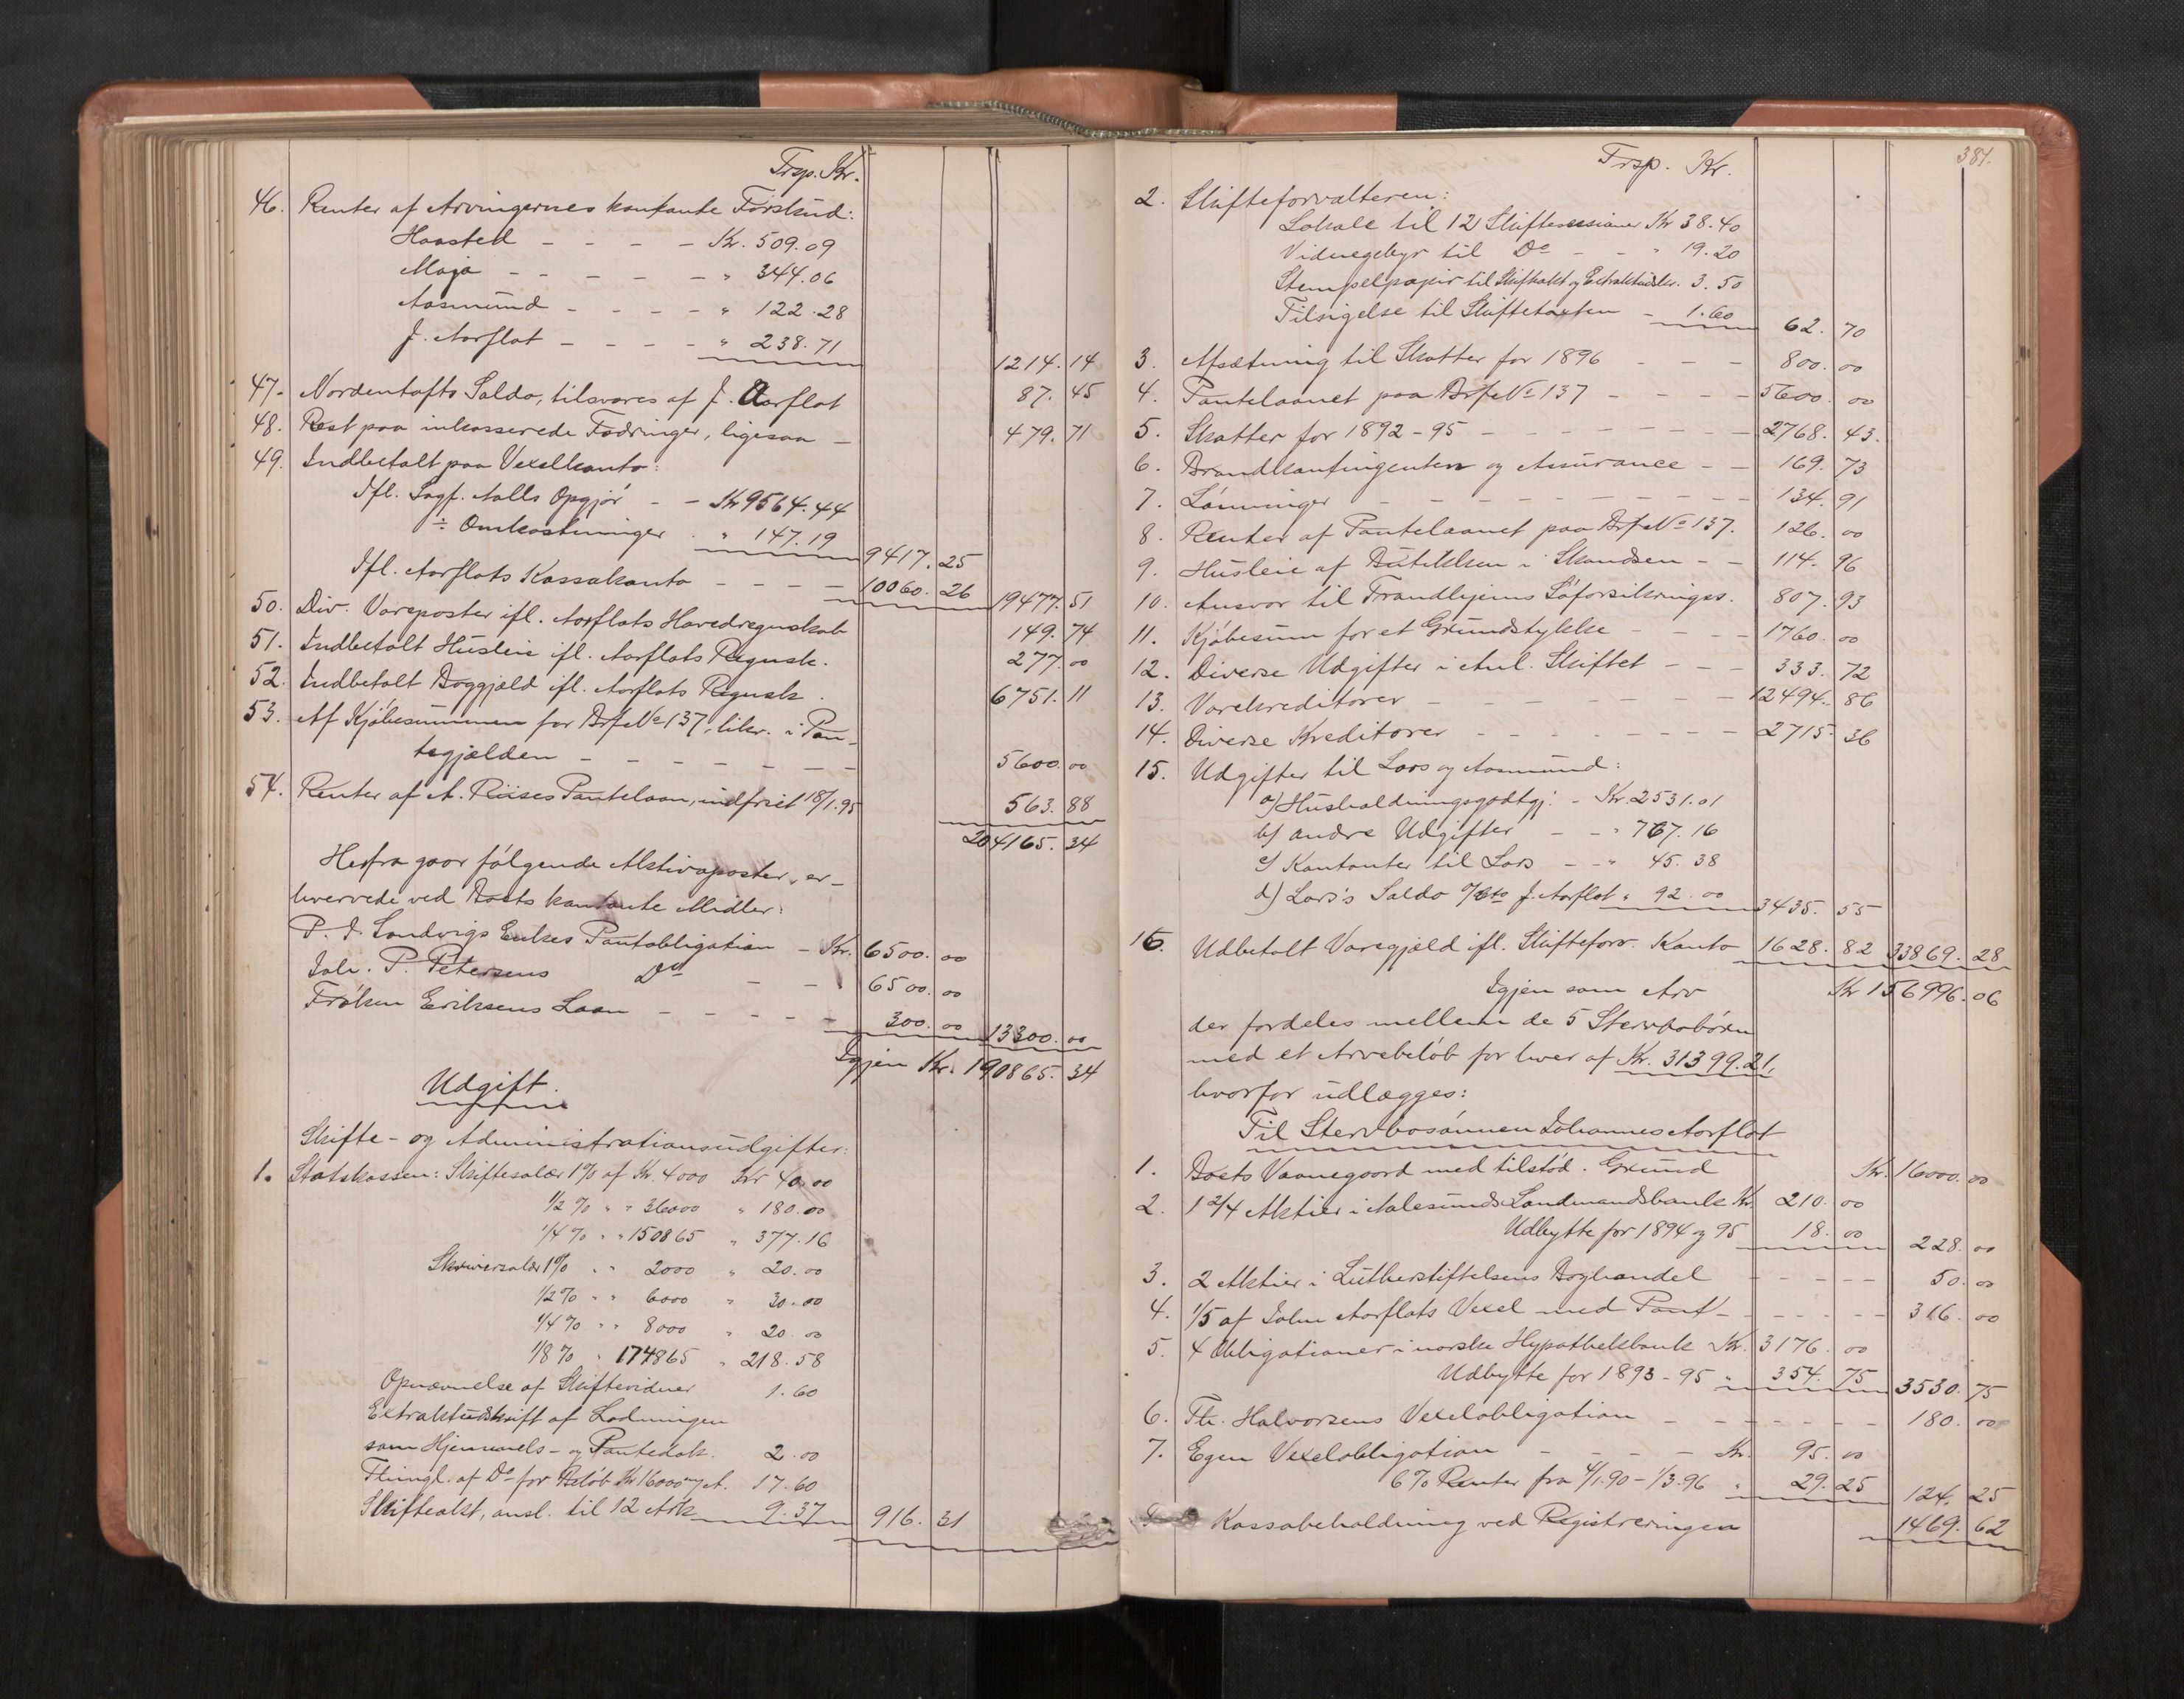 Trsp. Kr.
46. Renter af Arvingernes kontante Forskud:
Haasted - - - - Kr. 509.09
Maja - - - - - " 344.06
Aasmund - - - - " 122.28
J. Aarflot - - - - " 238.71 1214. 14
47. Nordentofts Saldo, tilsvares af J. Aarflot 87. 45
48. Rest paa inkasserede Fodringer, ligesaa - 479. 71
49. Indbetalt paa Vexelkonto:
Ifl. Sagf. Aalls Opgjør - - Kr 9564.44
÷ Omkostninger " 147.19 9417. 25
Ifl. Aarflots Kassakonto - - - - 10060. 26 19477. 51
50. Div. Vareposter ifl. Aarflots Hovedregnskab 149. 74
51. Indbetalt Husleie ifl. Aarflots Regnsk. 277. 00
52. Indbetalt Boggjæld ifl. Aarflots Regnsk. 6751. 11
53. Af Kjøbesummen for Brf № 137, likv. i Pan-
tegjælden - - - - - - - 5600. 00
54. Renter af A. Riises Pantelaan, indfriet 18/1.95 563. 88
204165. 34
Herfra gaar følgende Aktivaposter, er-
hvervede ved Boets kontante Midler:
P. I. Sandvigs Enkes Pantobligation - Kr. 6500. 00
Joh. P. Petersens Do - - " 6500. 00
Frøken Eriksens Laan - - - - - 300. 00 13300. 00
Igjen Kr. 190865. 34
Udgift.
Skifte- og Administrationsudgifter:
1. Statskassen: Skiftesalær 1% af Kr. 4000 Kr 40.00
1/2 % " " 36000 " 180.00
1/4 % " " 150865 " 377.16
Skriversalær 1% " " 2000 " 20.00
1/2 % " " 6000 " 30.00
1/4 % " " 8000 " 20.00
1/8 % " 174865 " 218.58
Opnævnelse af Skiftevidner 1.60
Extraktudskrift af Lodningen
som Hjemmels- og Pantedok. 2.00
Thingl. af Do for Beløb Kr 16000 m. A. 17.60
Skifteakt, ansl. til 12 Ark 9.37 916. 31
381.
Trsp. Kr.
2. Skifteforvalteren:
Lokale til 12 Skiftesessioner Kr 38.40
Vidnegebyr til Do - - " 19.20
Stempelpapir til Skifteakt og Extraktudskr. 3.50
Tilsigelse til Skiftetaxten - 1.60 62. 70
3. Afsætning til Skatter for 1896 - - - 800. 00
4. Pantelaanet paa Brf № 137 - - - - 5600. 00
5. Skatter for 1892-95 - - - - - - - 2768. 43.
6. Brandkontingenten og Assurance - - 169. 73
7. Lønninger - - - - - - - - - 134. 91
8. Renter af Pantelaanet paa Brf № 137. 126. 00
9. Husleie af Butikken i Skandsen - - 114. 96
10. Ansvar til Trondhjems Søforsikrings. 807. 93
11. Kjøbesum for et Grundstykke - - - - 1760. 00
12. Diverse Udgifter i Anl. Skiftet - - - 333. 72
13. Varekreditorer - - - - - - - 12494. 86
14. Diverse Kreditorer - - - - - - - 2715. 36
15. Udgifter til Lars og Aasmund:
a) Husholdningsgodtgj. - Kr. 2531.01
b) andre Udgifter - - " 767.16
c) Kontanter til Lars - - " 45.38
d) Lars's Saldo J. Aarflot " 92.00 3435. 55
16. Udbetalt Varegjæld ifl. Skifteforv. Konto 1628. 82 33869. 28
Igjen som Arv Kr 156996. 06
der fordeles mellem de 5 Stervbobørn
med et Arvebeløb for hver af Kr. 31399.21,
hvorfor udlægges:
Til Stervbosønnen Johannes Aarflot
1. Boets Vaanegaard med tilstød. Grund Kr. 16000. 00
2. 1 2/4 Aktier i Aalesunds Landmandsbank Kr. 210. 00
Udbytte for 1894 og 95 18. 00 228. 00
3. 2 Aktier i Lutherstiftelsens Boghandel - - - - 50. 00
4. 1/5 af John Aarflots Vexel med Pant - - - - - 316. 00
5. 4 Obligationer i norske Hypothekbank Kr. 3176. 00
Udbytte for 1893-95 " 354. 75 3530. 75
6. Th. Halvorsens Vexelobligation - - - - - - 180. 00
7. Egen Vexelobligation - - - - Kr. 95. 00
6% Renter fra 4/1.90 - 1/3.96 " 29. 25 124. 25
Kassabeholdning ved Registreringen 1469. 62